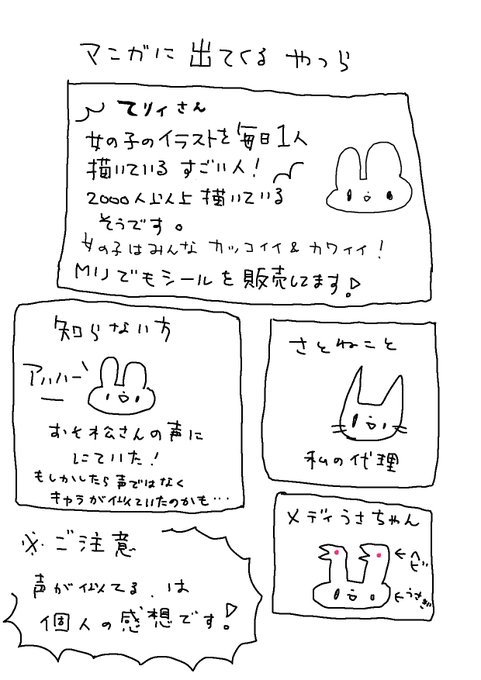 マンガに出てくるやつら
てりィさん
女の子のイラストを毎日1人
描いているすごい人!
2000人以上描いている
そうです。
女の子はみんなカッコイイ&カワイイ!
MIJでもシールを販売してます!
知らない方
アハハー
おそ松さんの声に
にていた!
もしかしたら声ではなく
キャラが似ていたのかも…
さとねこと
私の代理
メディうさちゃん
←ヘビ
←うさぎ
※ご注意
声が似てる、は
個人の感想です!